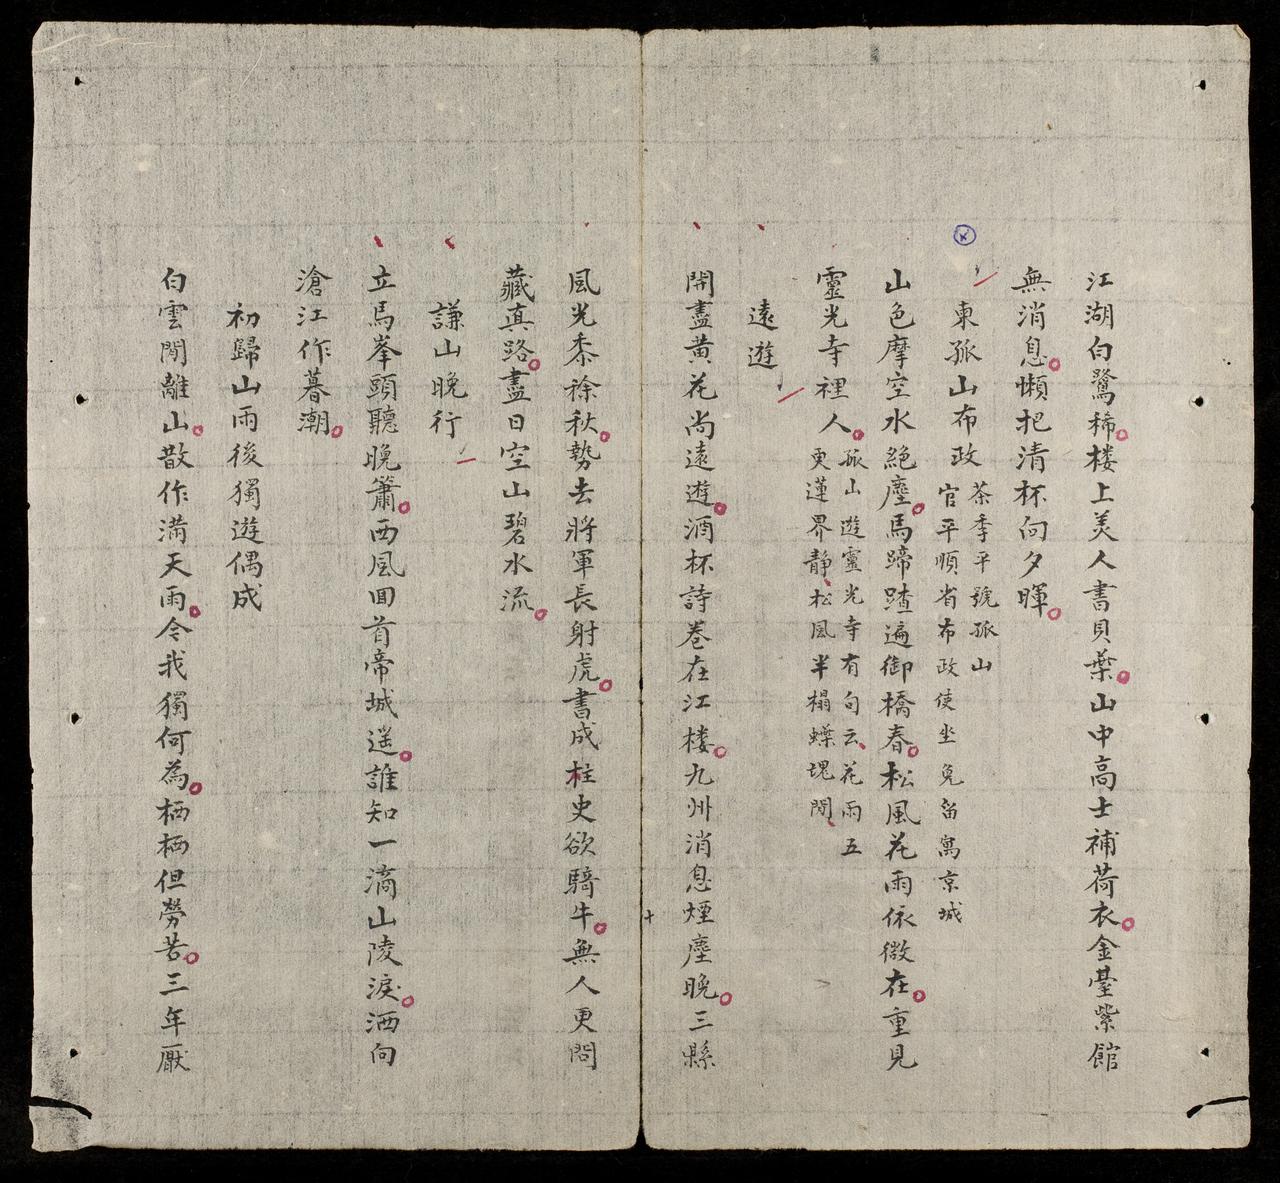 江湖白鷺稀楼上美人書貝葉山中高士補荷衣金臺紫館
無消息懶把清杯向夕暉
東孤山布政
茶季平號孤山
官平順省布政使坐免留寓京城
山色摩空水絕塵馬蹄踏遍御橋春松風花雨依微在重見
靈光寺裡人
孤山遊靈光寺有句云花雨五
更蓮界靜松風半榻蝶塊閒
遠遊
開盡黄花尚遠遊酒杯詩卷在江楼九州消息煙塵晚三縣
風光黍稌秋勢去將軍長射虎書成柱史欲騎牛無人更問
藏真路盡日空山碧水流
謙山晚行
立馬峯頭聽晚簫西風回首帝城遥誰知一滴山陵淚洒向
滄江作暮潮
初歸山雨後獨遊偶成
白雲閒離山散作满天雨令我獨何為栖栖但勞苦三年厭